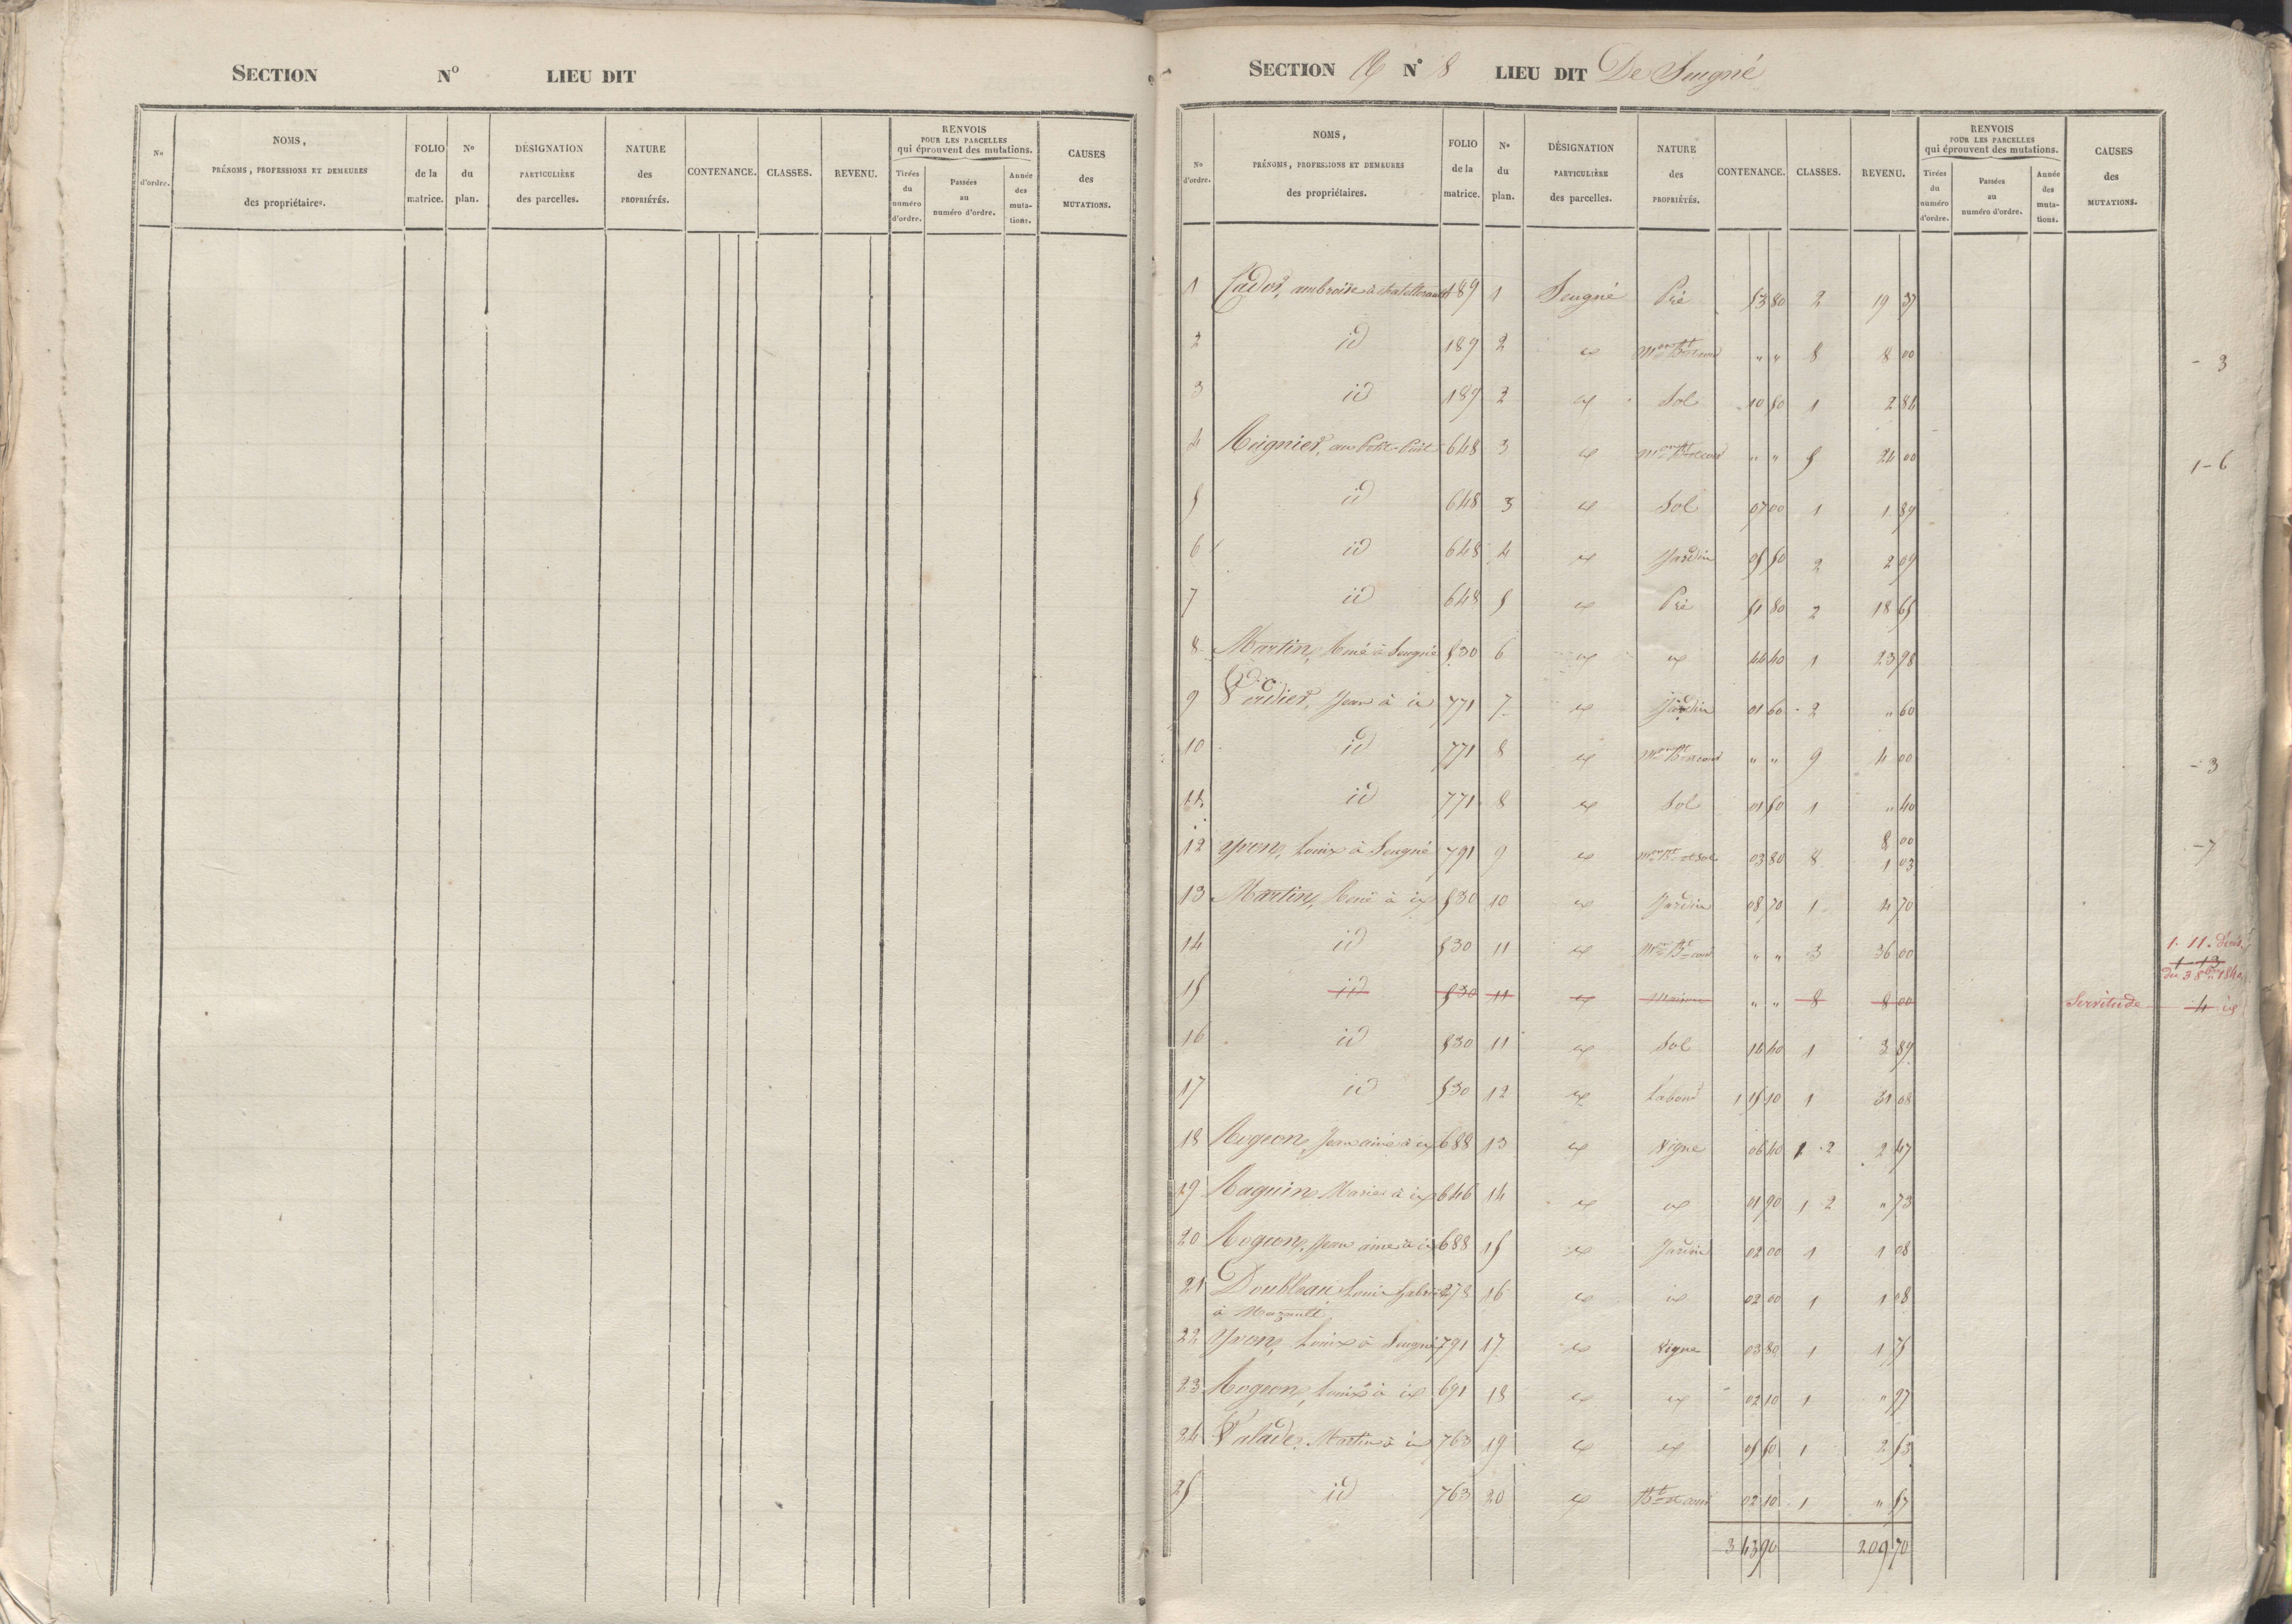 SECTION N° LIEU DIT
N° d'ordre. NOMS, PRÉNOMS, PROFESSIONS ET DEMEURES des propriétaires. FOLIO de la matrice. N° du plan. DÉSIGNATION PARTICULIÈRE des parcelles. NATURE des PROPRIÉTÉS. CONTENANCE. CLASSES. REVENU. RENVOIS POUR LES PARCELLES qui éprouvent des mutations. Tirées du numéro d'ordre. Passées au numéro d'ordre. Année des mutations. CAUSES des MUTATIONS.
SECTION N° 8 LIEU DIT De Seugné
N° d'ordre. NOMS, PRÉNOMS, PROFESSIONS ET DEMEURES des propriétaires. FOLIO de la matrice. N° du plan. DÉSIGNATION PARTICULIÈRE des parcelles. NATURE des PROPRIÉTÉS. CONTENANCE. CLASSES. REVENU. RENVOIS POUR LES PARCELLES qui éprouvent des mutations. Tirées du numéro d'ordre. Passées au numéro d'ordre. Année des mutations. CAUSES des MUTATIONS.
1 ambroise à chatellerault 189 1 Seugné Pré 53 80 2 19 37
2 id 189 2 id " " 8 8 00 - 3
3 id 189 2 id Sol 10 50 1 2 84
4 648 3 id " " 5 24 00 1-6
5 id 648 3 id Sol 07 00 1 1 89
6 id 648 4 id Jardin 05 50 2 2 09
7 id 648 5 id Pré 51 80 2 18 65
8 Martin, René à Seugné 530 6 id id 44 40 1 23 98
9 Verdier, Jean à id 771 7 id Jardin 01 60 2 " 60
10 id 771 8 id " " 9 4 00 - 3
11 id 771 8 id Sol 01 50 1 " 40
12 Yvon, Louis à Seugné 791 9 id 03 80 8 8 00 1 03 - 7
13 Martin, René à id 530 10 id Jardin 08 70 1 4 70
14 id 530 11 id " " 3 36 00 1. 11. 1-13
15 id 530 11 id Maison " " 8 8 00 Servitude 4 id
16 id 530 11 id Sol 14 40 1 3 89
17 id 530 12 id Labour 1 15 10 1 31 08
18 Rogeon, Jean ainé à id 688 13 id Vigne 06 40 1 2 2 47
19 Raguin, Marie à id 646 14 id id 01 90 1 2 " 73
20 Rogeon, Jean ainé à id 688 15 id Jardin 02 00 1 1 08
21 Doubleau Louis Gabriel 278 16 id id 02 00 1 1 08
à Mazault
22 Yvon, Louis à Seugné 791 17 id Vigne 03 80 1 1 75
23 Rogeon, Louis à id 691 18 id id 02 10 1 " 97
24 Valade, Martin à id 763 19 id id 05 50 1 2 53
25 id 763 20 id Bt et cour 02 10 1 " 57
3 43 90 209 70